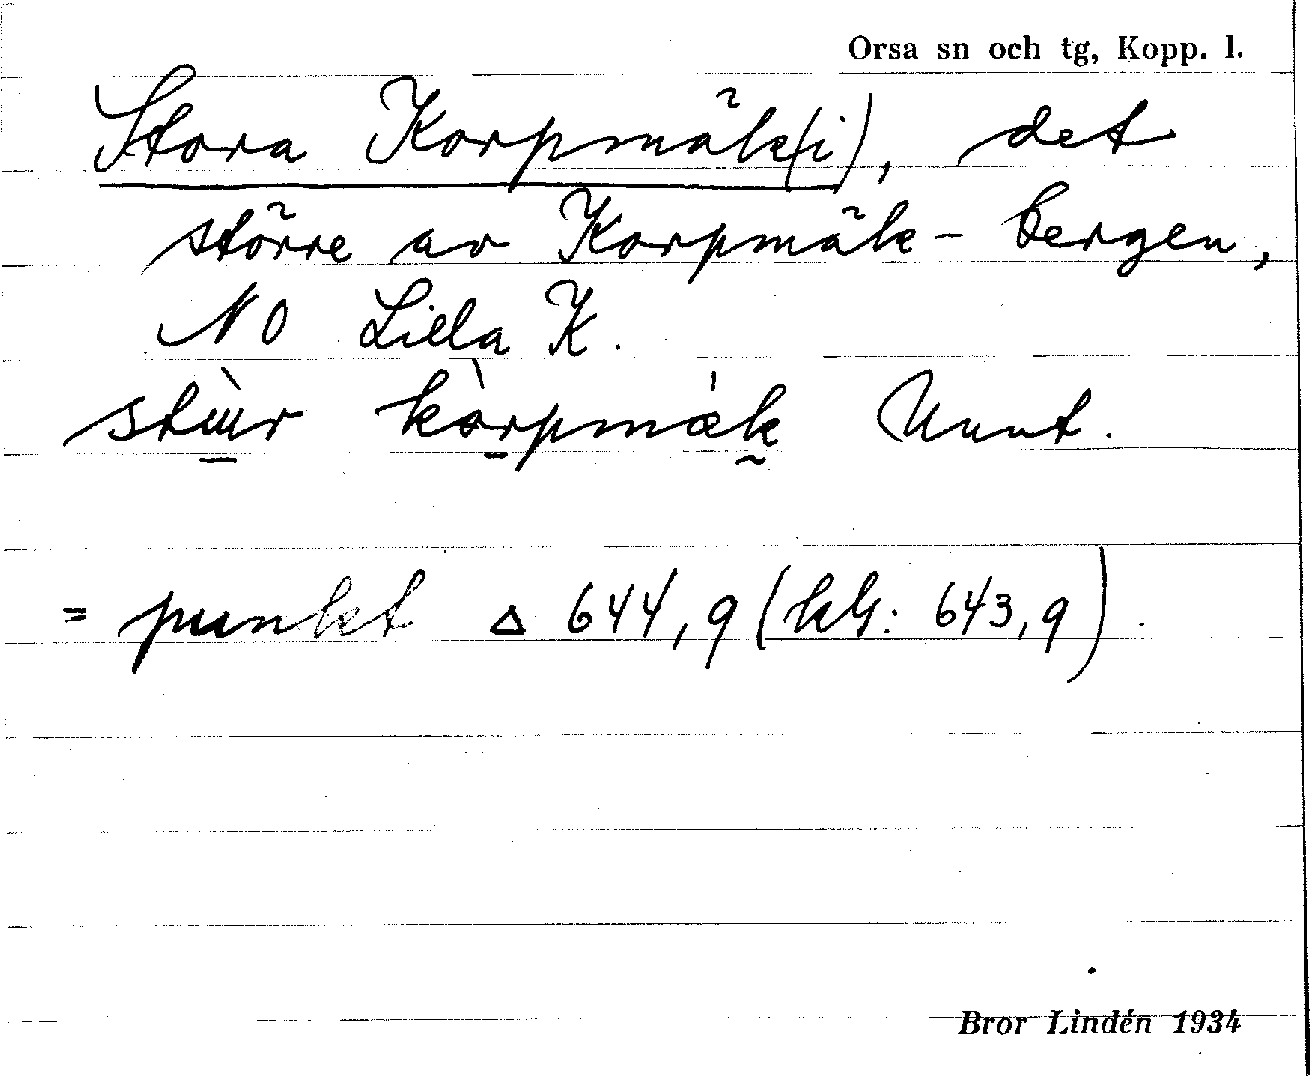 Orsa sn och tg, Kopp. l.
Stora Korpmäk(i), det
större av Korpmäk-bergen,
NO Lilla K.
korpmæk
= punkt △ 644,9 (kb: 643,9).
Bror Lindén 1934